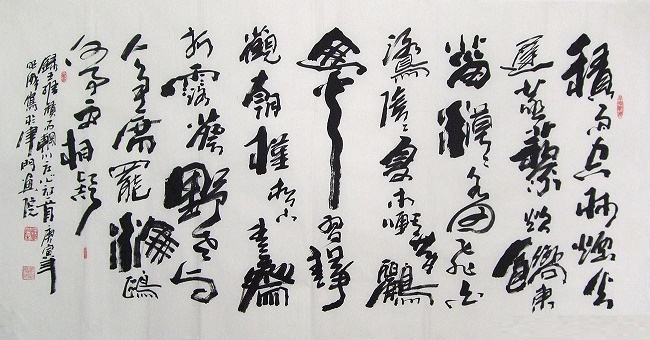 積雨空林煙火
遲蒸藜炊黍餉東
菑漠〻水田飛白
鷺陰〻夏木囀黃鸝
山中習靜
觀朝槿松下清齋
折露葵野老與
人爭席罷海鷗
何事更相疑
錄王維積雨輞川庄作一首庚寅年
於津門